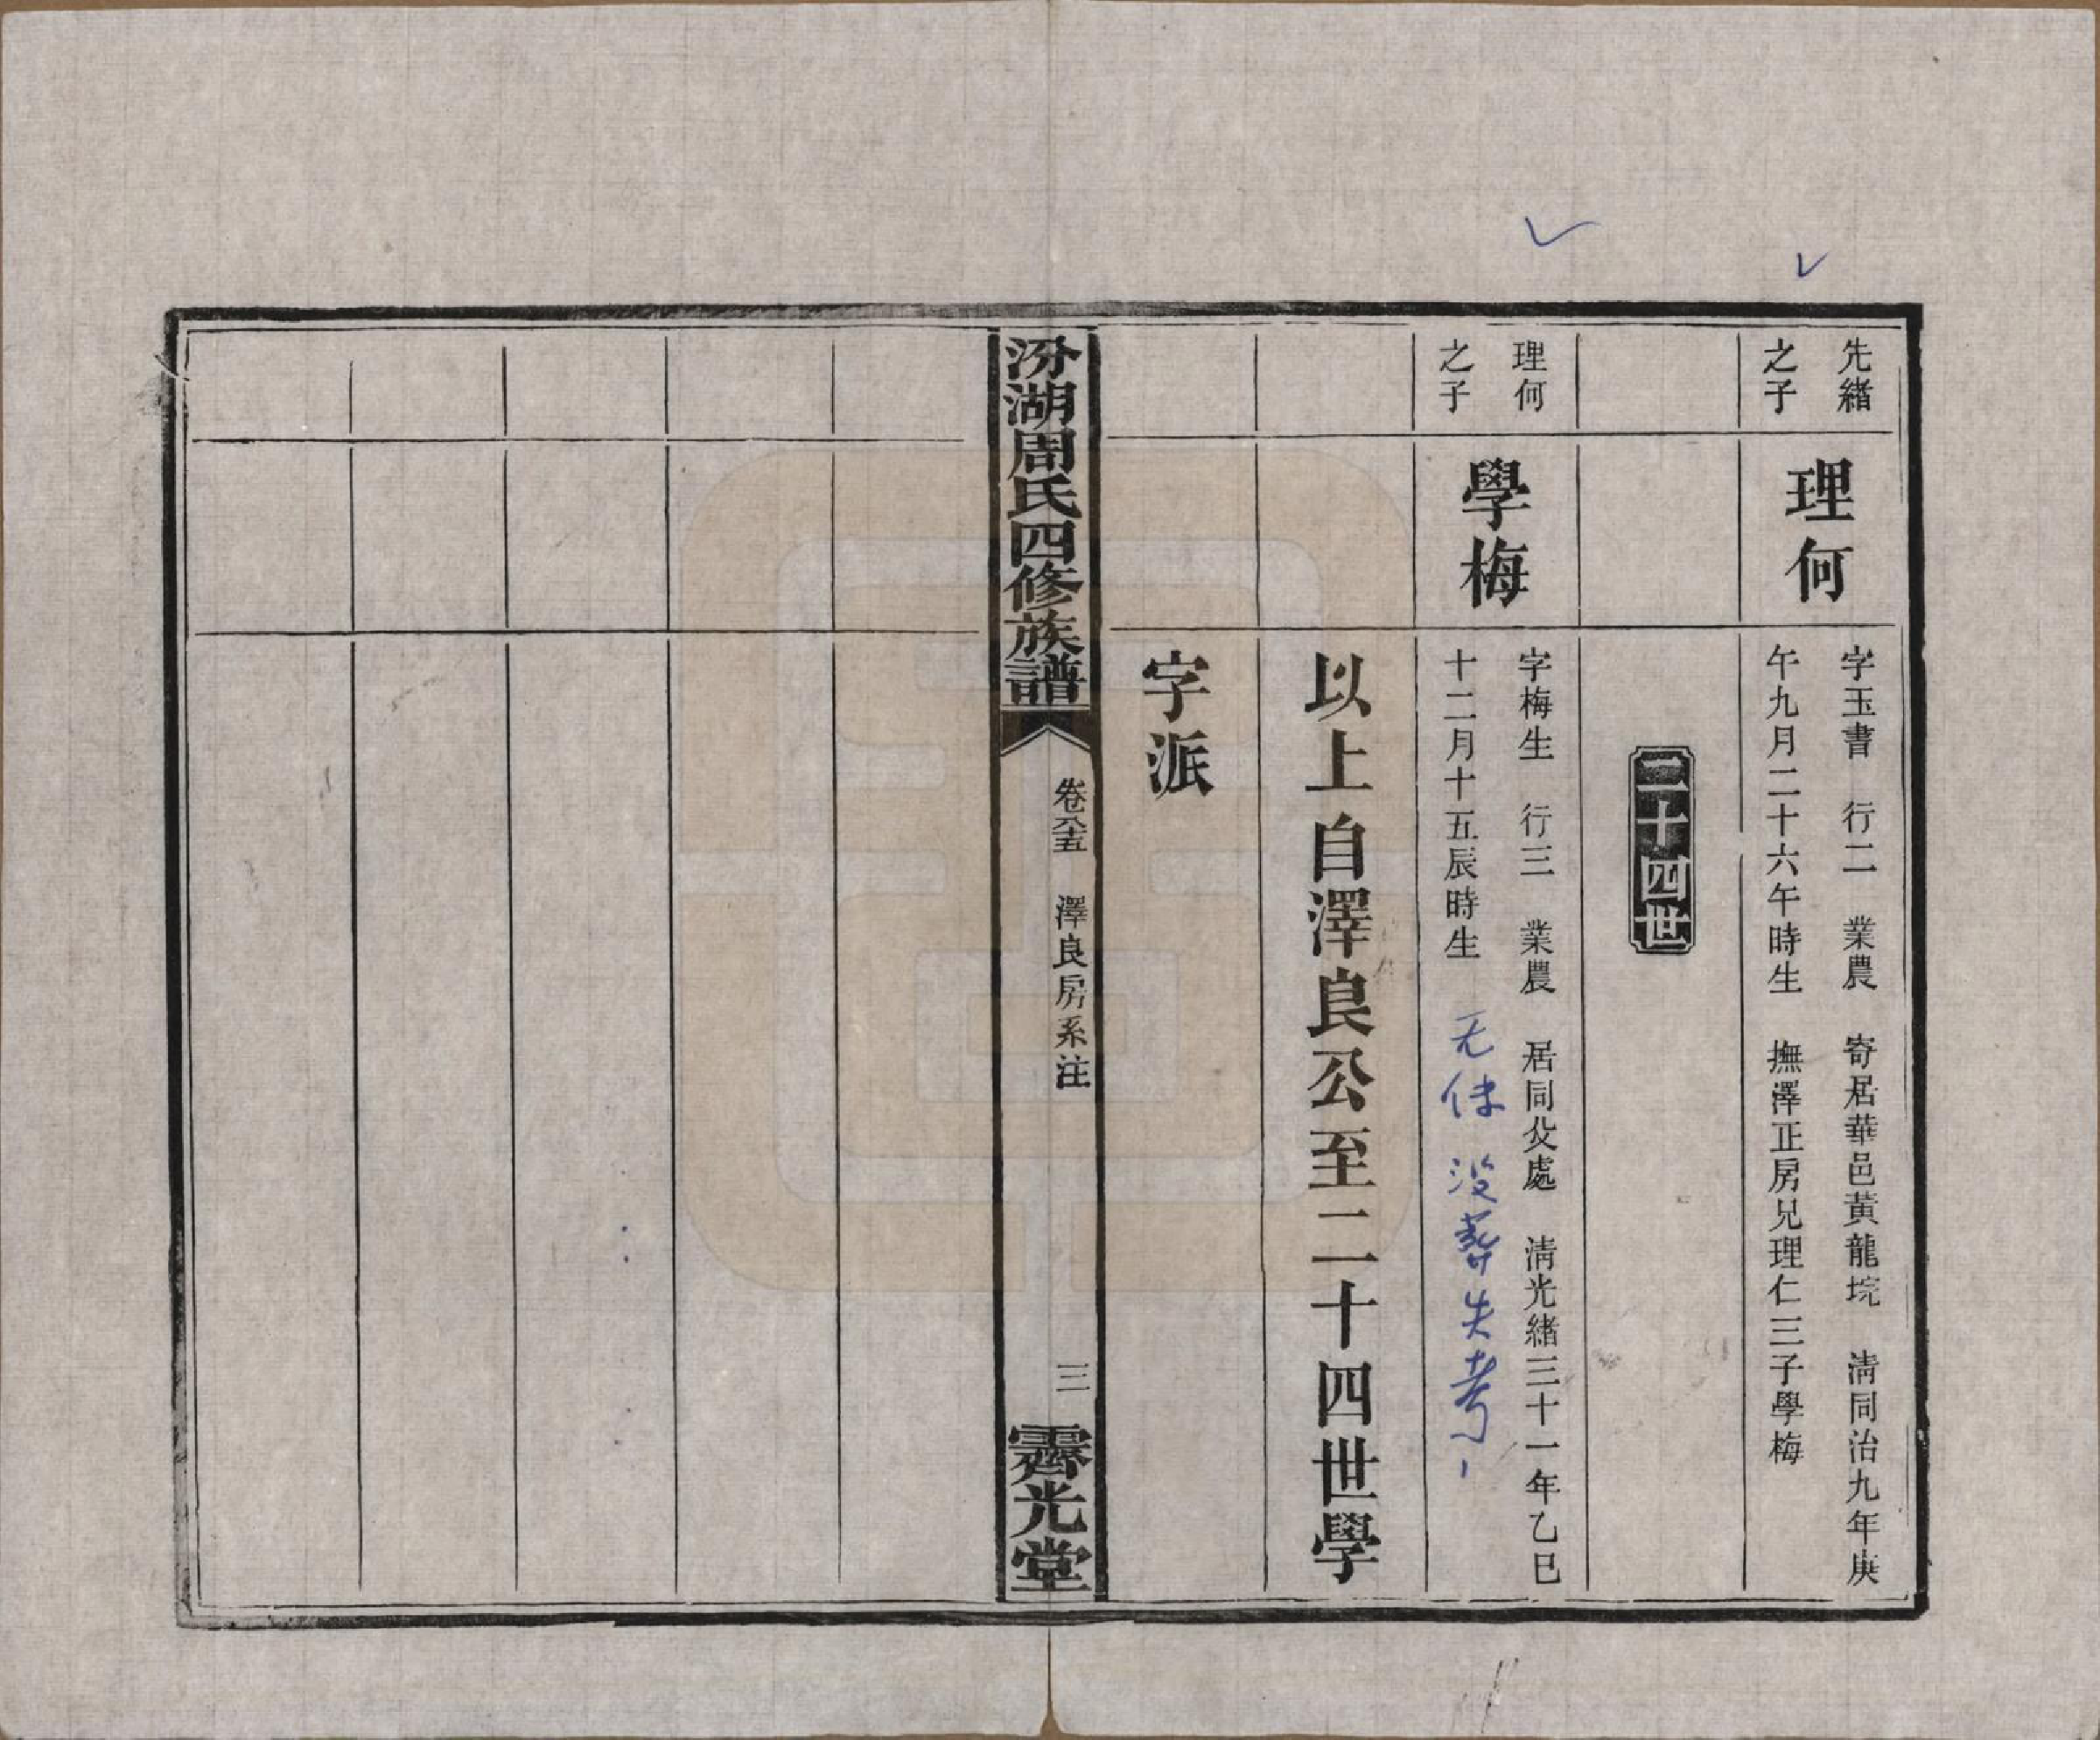 先緒
之子
理何
字玉書　行二　業農　寄居華邑黃龍垸　淸同治九年庚
午九月二十六午時生　撫澤正房兄理仁三子學梅
二十四世
理何
之子
學梅
字梅生　行三　業農　居同父處　淸光緒三十一年乙巳
十二月十五辰時生　无传　没葬失考
以上自澤良公至二十四世學
字派
汾湖周氏四修族譜
卷八十五　澤良房系注
三
霽光堂